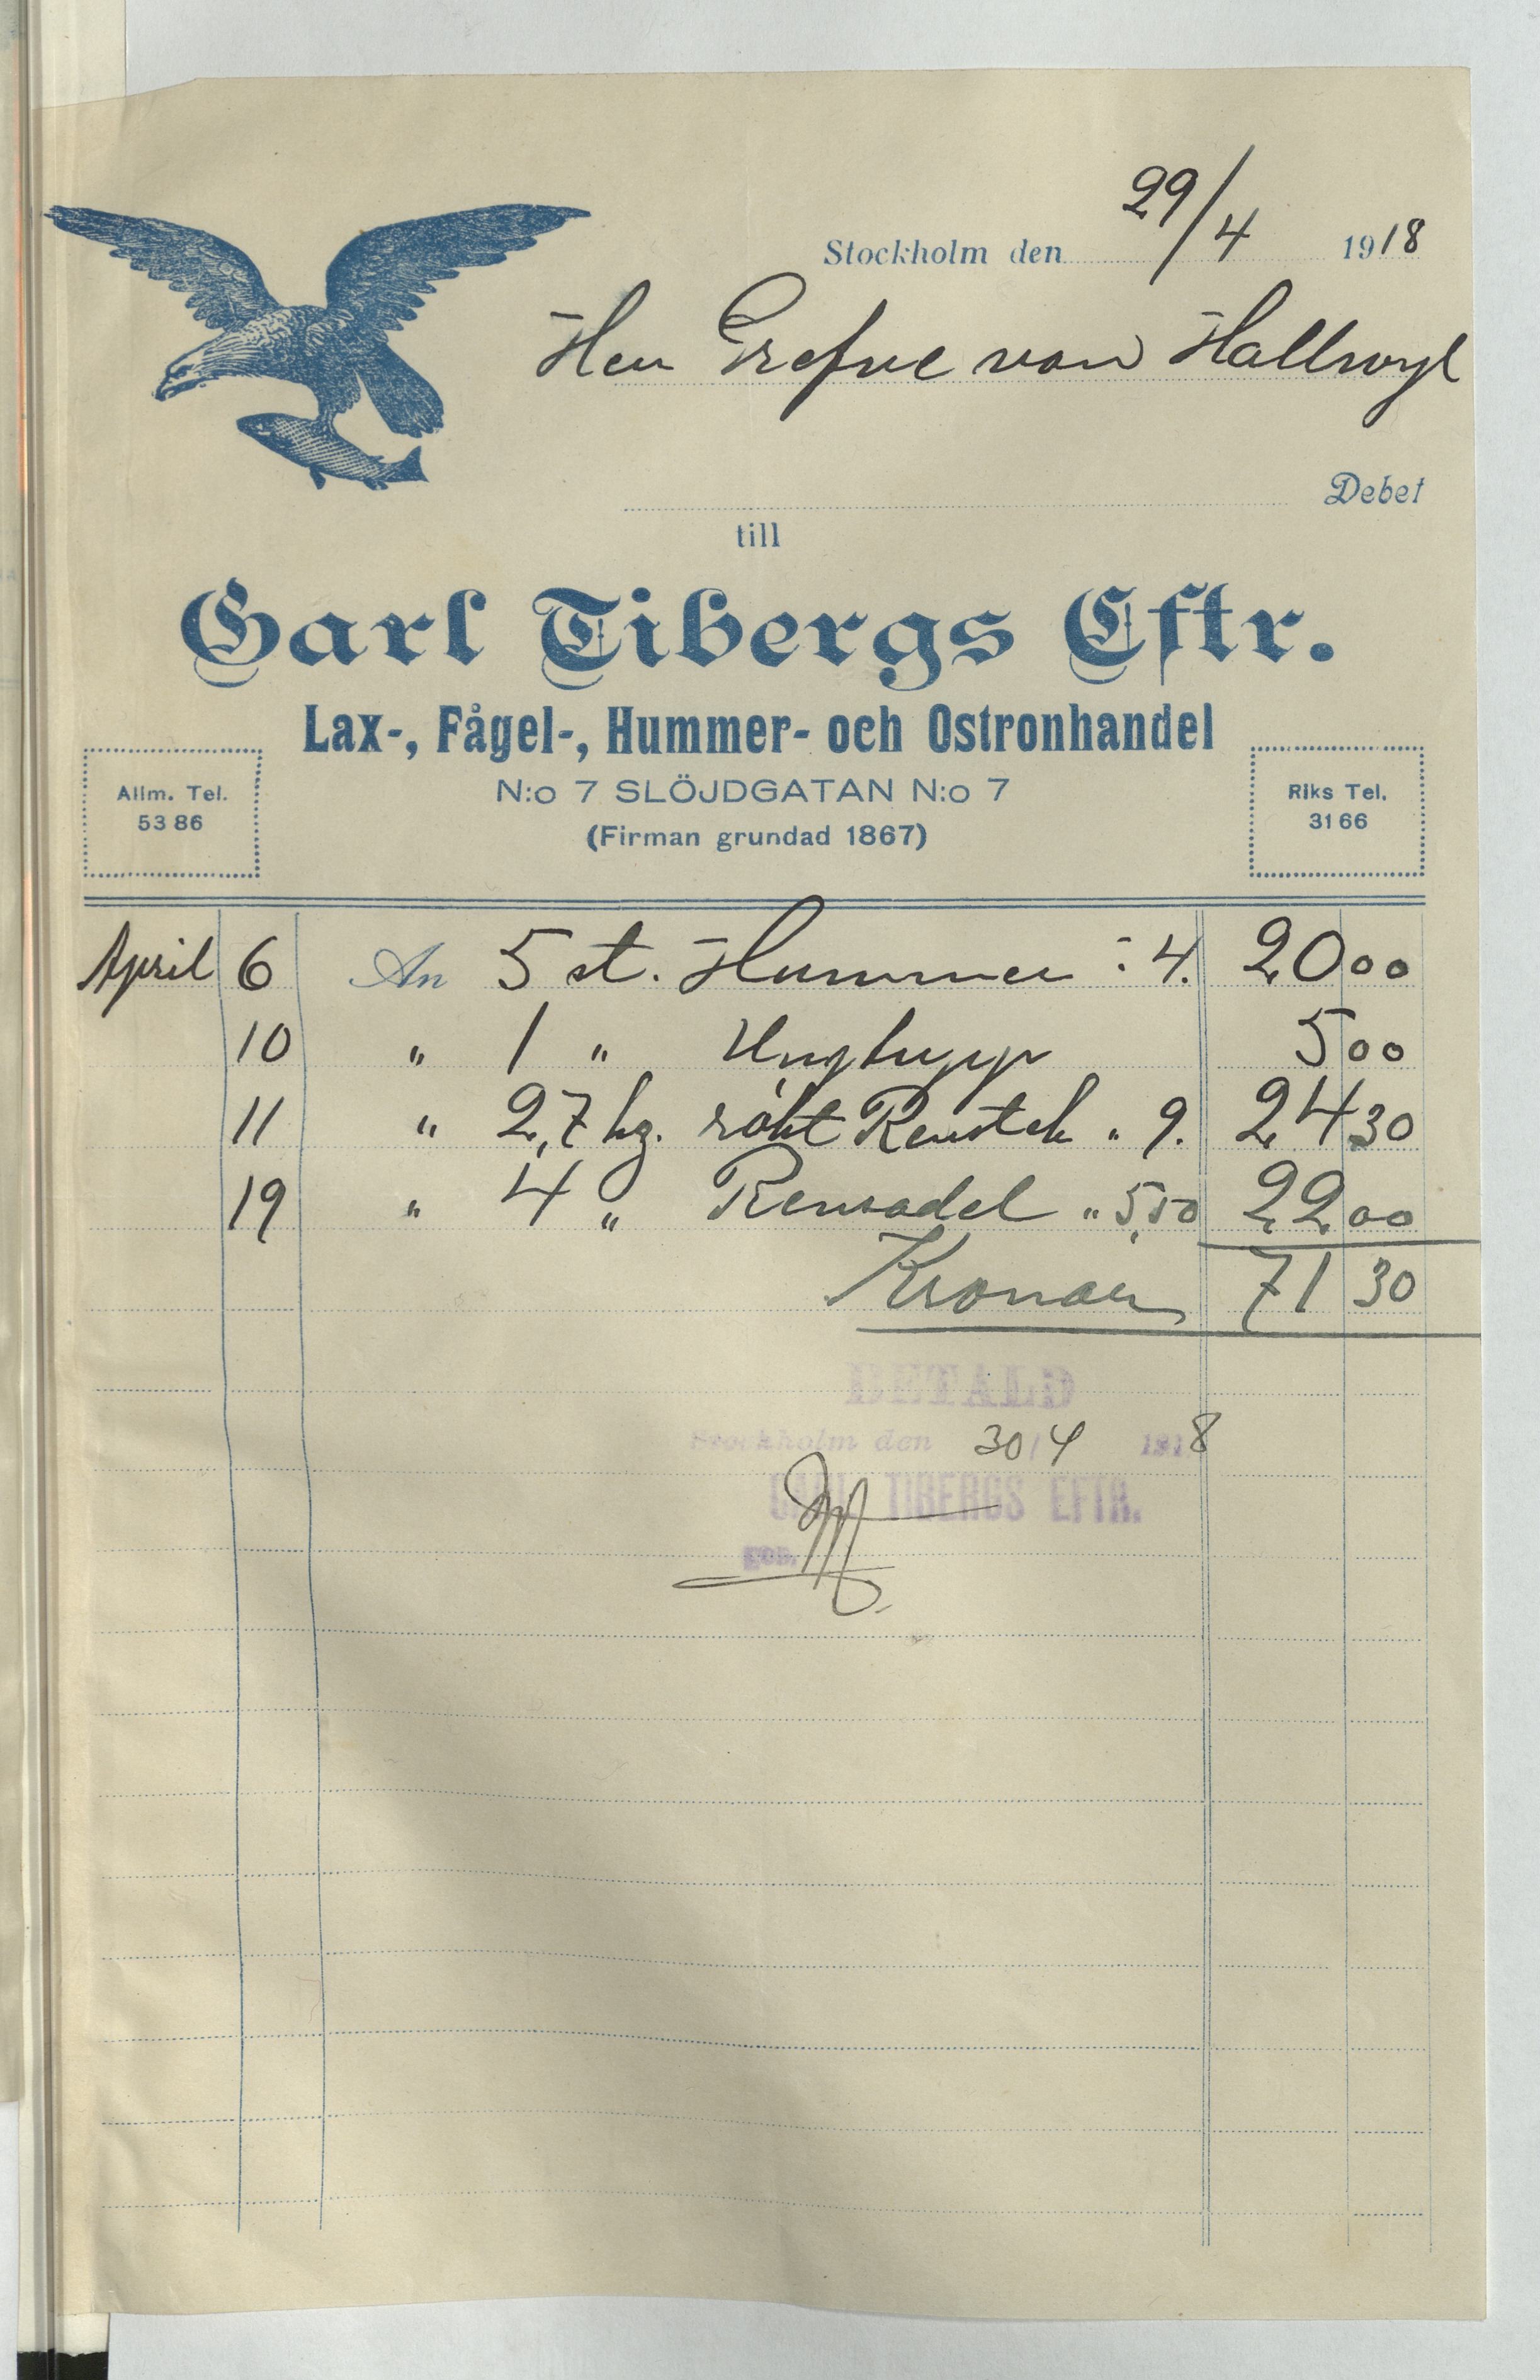 Stockholm den 29/4 1918
Herr Grefve von Hallwyl
Debet
till
Carl Tibergs Eftr.
Lax-, Fågel-, Hummer- och Ostronhandel
N:o 7 SLÖJDGATAN N:o 7
(Firman grundad 1867)
Allm. Tel.
53 86
Riks Tel.
31 66
April 6 An 5 st. Hummer : 4. 20 00
10 " 1 " Ungtupp 5 00
11 " 2,7 kg. rökt Renstek " 9. 24 30
19 " 4 " Rensadel " 5,50 22 00
Kronor 71 30
BETALD
Stockholm den 30/4 1918
CARL TIBERGS EFTR.